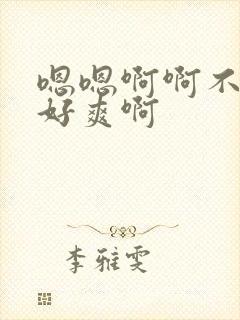 嗯嗯啊啊不
好爽啊
李雅雯